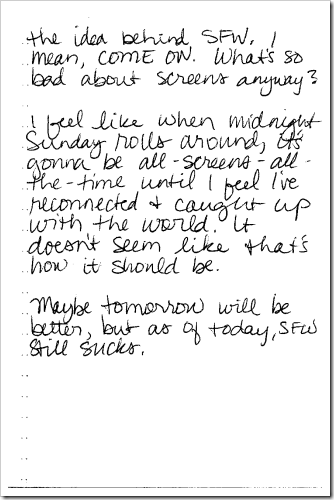 the idea behind SFW. I
mean, COME ON. What's so
bad about screens anyway?
I feel like when midnight
Sunday rolls around, it's
gonna be all-screens-all-
the-time until I feel I've
reconnected & caught up
with the world. It
doesn't seem like that's
how it should be.
Maybe tomorrow will be
better, but as of today, SFW
still sucks.